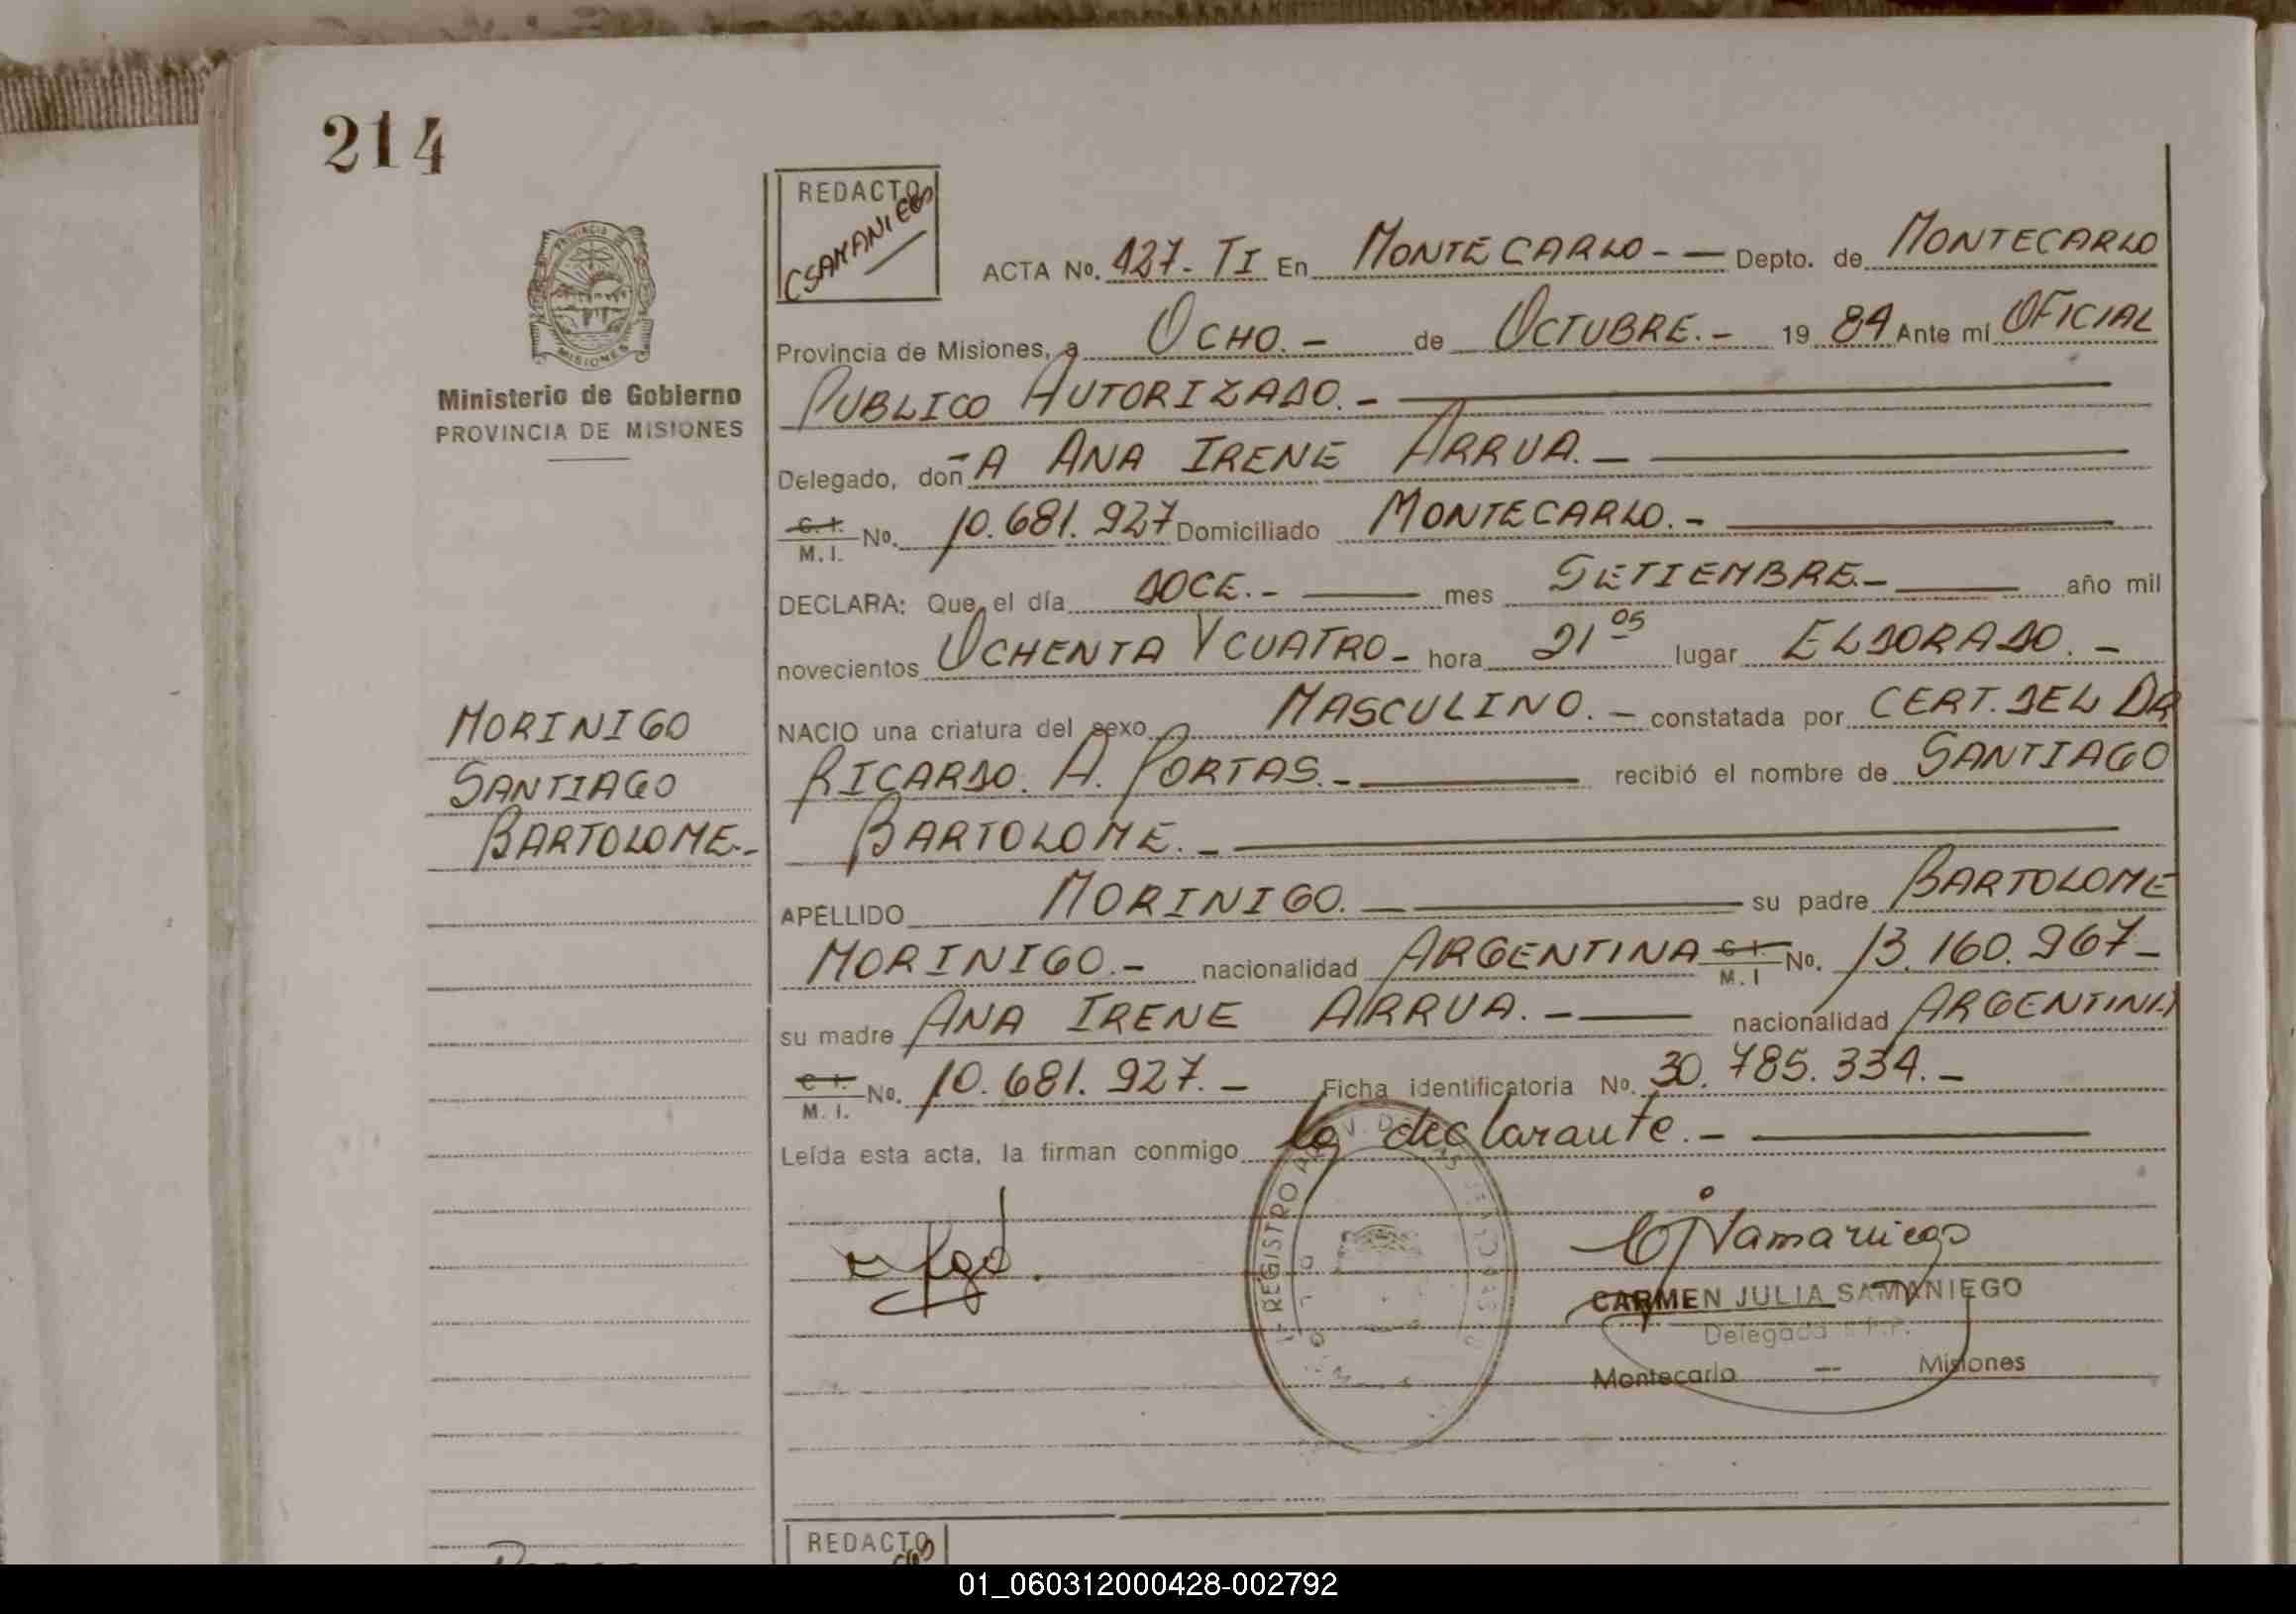 214
REDACTO
CSAMANIEGO
ACTA No. 427-TI En MONTECARLO - — Depto. de MONTECARLO
Provincia de Misiones, a OCHO.- de OCTUBRE.- 19 84 Ante mí OFICIAL
PUBLICO AUTORIZADO.-
Delegado, doñA ANA IRENE ARRUA.-
C. I. / M. I. No. 10.681.927 Domiciliado MONTECARLO.-
DECLARA: Que el día DOCE.- mes SETIEMBRE.- año mil
novecientos OCHENTA Y CUATRO - hora 21 05 lugar ELDORADO.-
NACIO una criatura del sexo MASCULINO.- constatada por CERT. DEL DR
RICARDO. A. PORTAS.- recibió el nombre de SANTIAGO
BARTOLOME.-
APELLIDO MORINIGO.- su padre BARTOLOME
MORINIGO.- nacionalidad ARGENTINA C. I. / M. I No. 13.160.967-
su madre ANA IRENE ARRUA.- nacionalidad ARGENTINA
C. I. / M. I. No. 10.681.927.- Ficha identificatoria No. 30.785.334.-
Leída esta acta, la firman conmigo la declarante.-
CARMEN JULIA SAMANIEGO
Delegada
Montecarlo — Misiones
REGISTRO
PROVINCIA DE
MISIONES
Ministerio de Gobierno
PROVINCIA DE MISIONES
MORINIGO
SANTIAGO
BARTOLOME.-
REDACTO
01_060312000428-002792